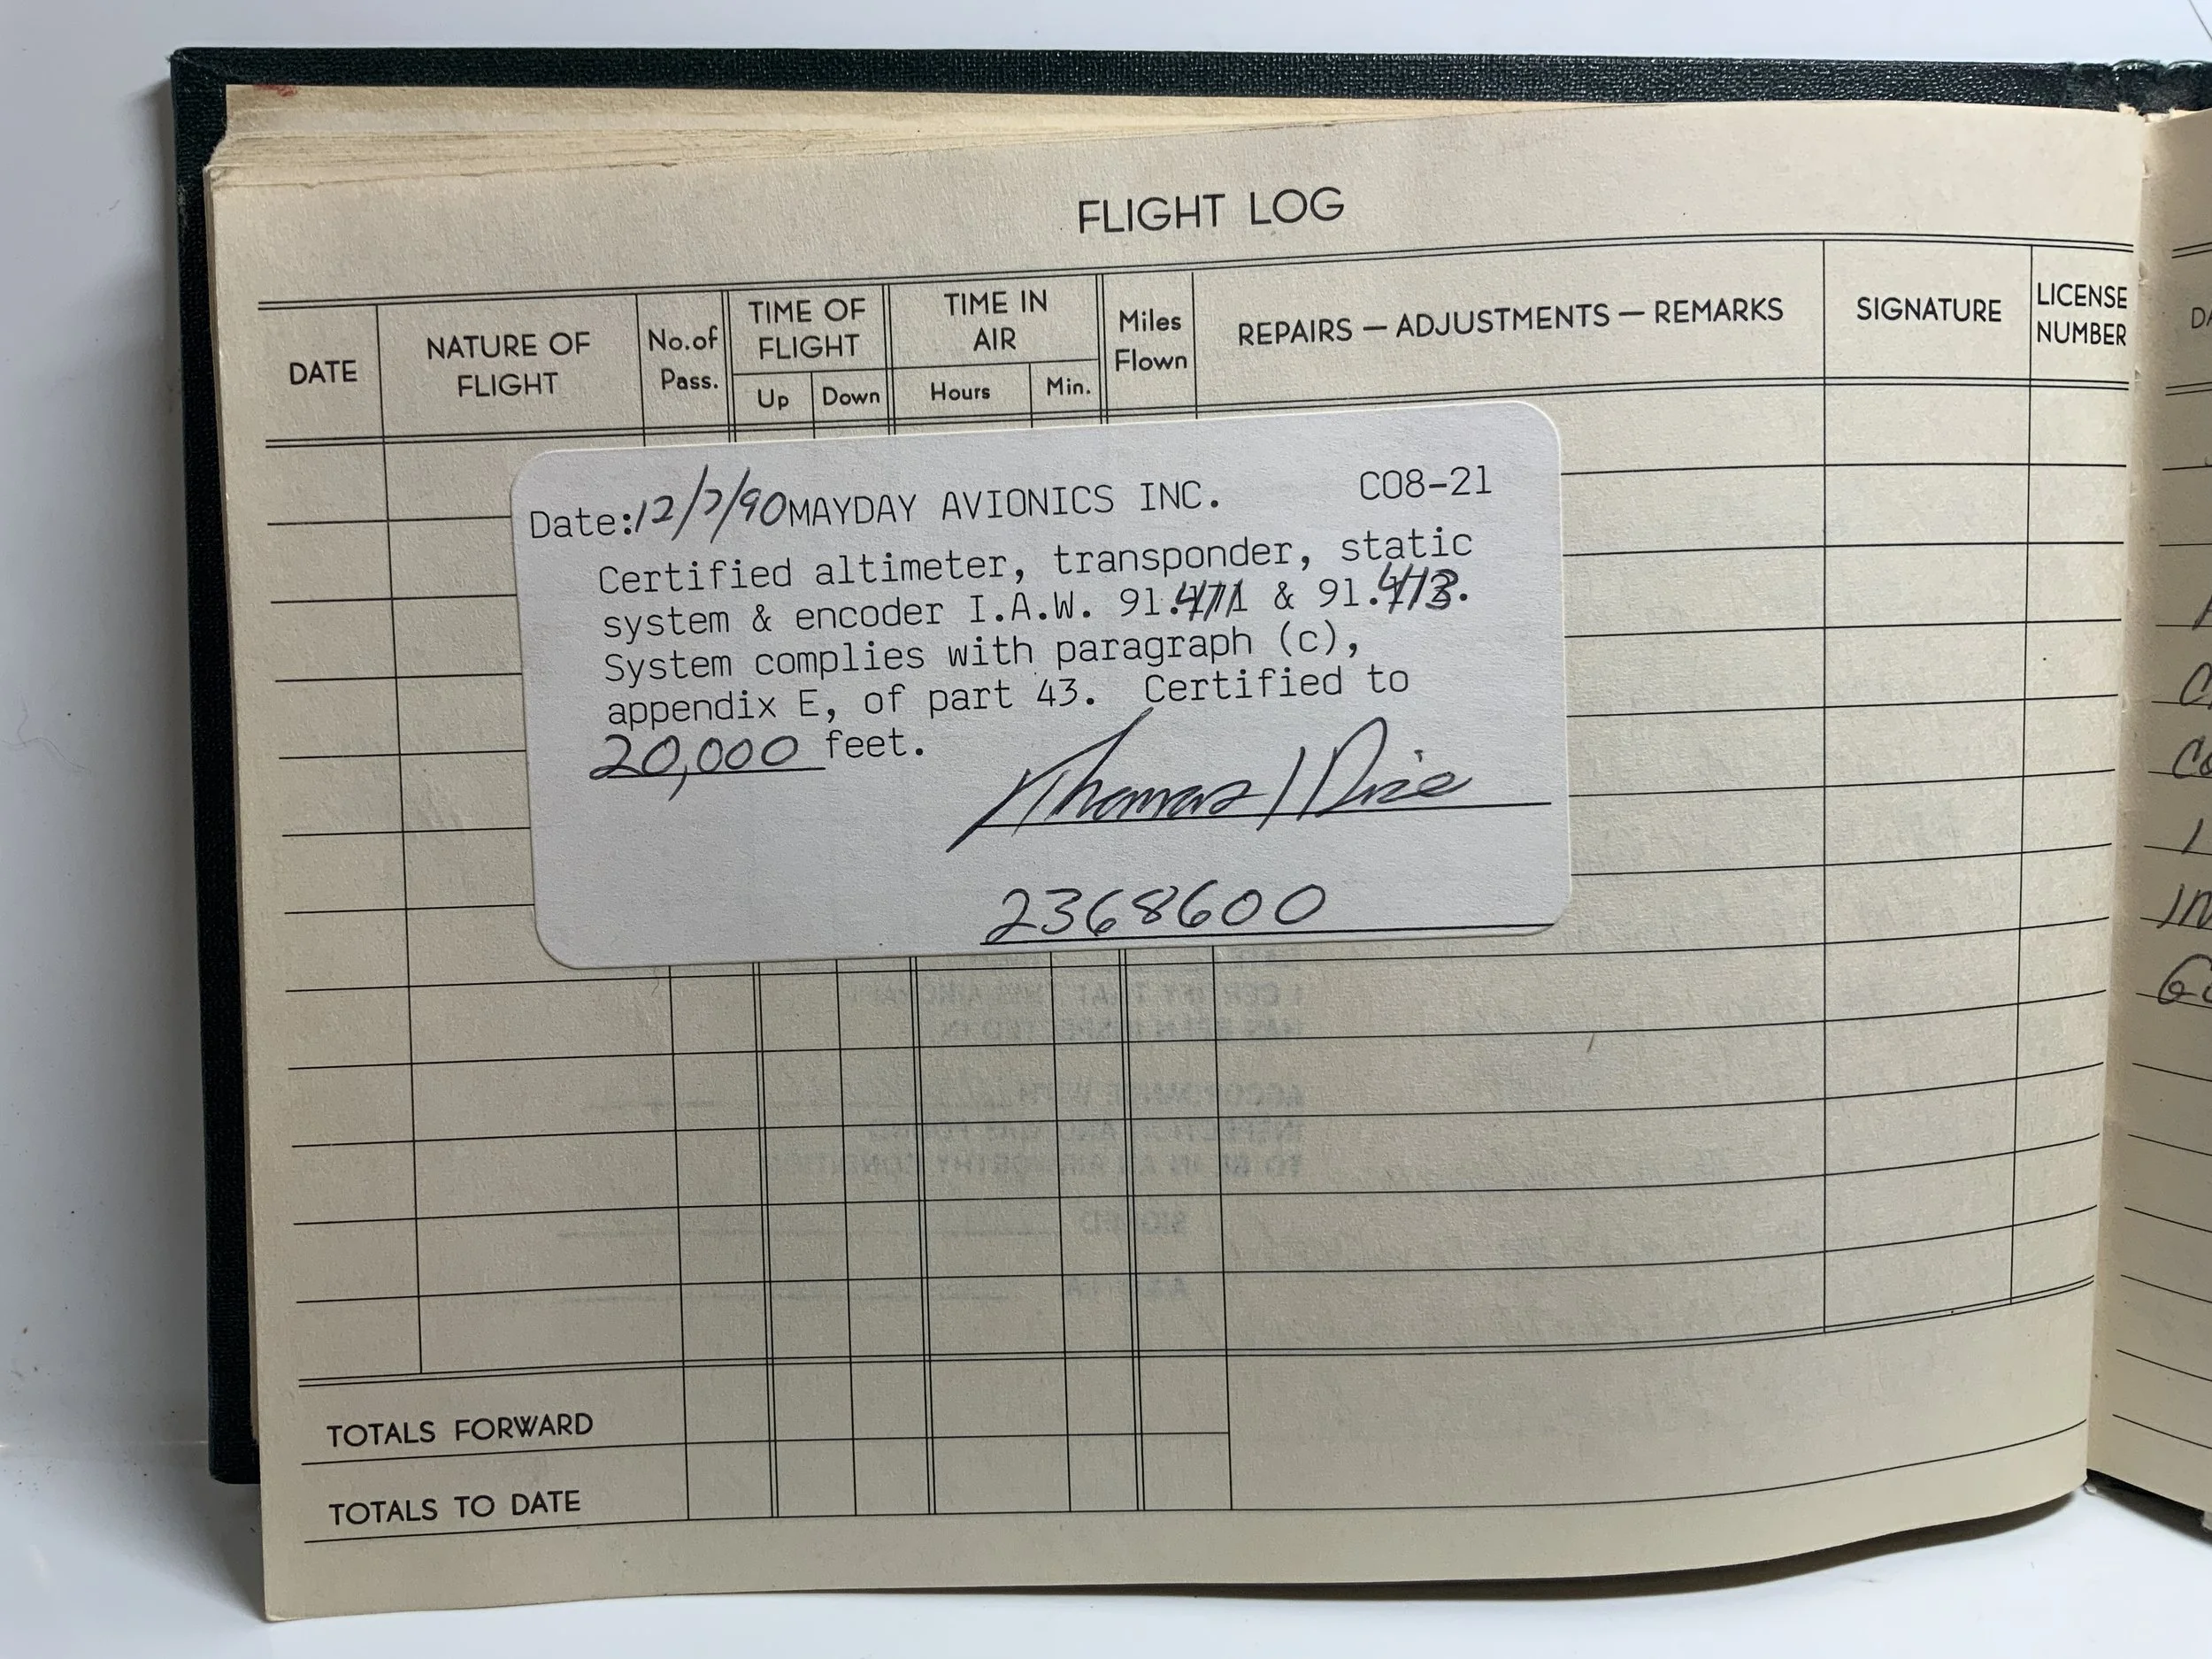 FLIGHT LOG
DATE
NATURE OF
FLIGHT
No. of
Pass.
TIME OF
FLIGHT
Up Down
TIME IN
AIR
Hours Min.
Miles
Flown
REPAIRS — ADJUSTMENTS — REMARKS
SIGNATURE
LICENSE
NUMBER
Date: 12/7/90 MAYDAY AVIONICS INC. C08-21
Certified altimeter, transponder, static
system & encoder I.A.W. 91.411 & 91.413.
System complies with paragraph (c),
appendix E, of part 43. Certified to
20,000 feet.
Thomas
2368600
TOTALS FORWARD
TOTALS TO DATE